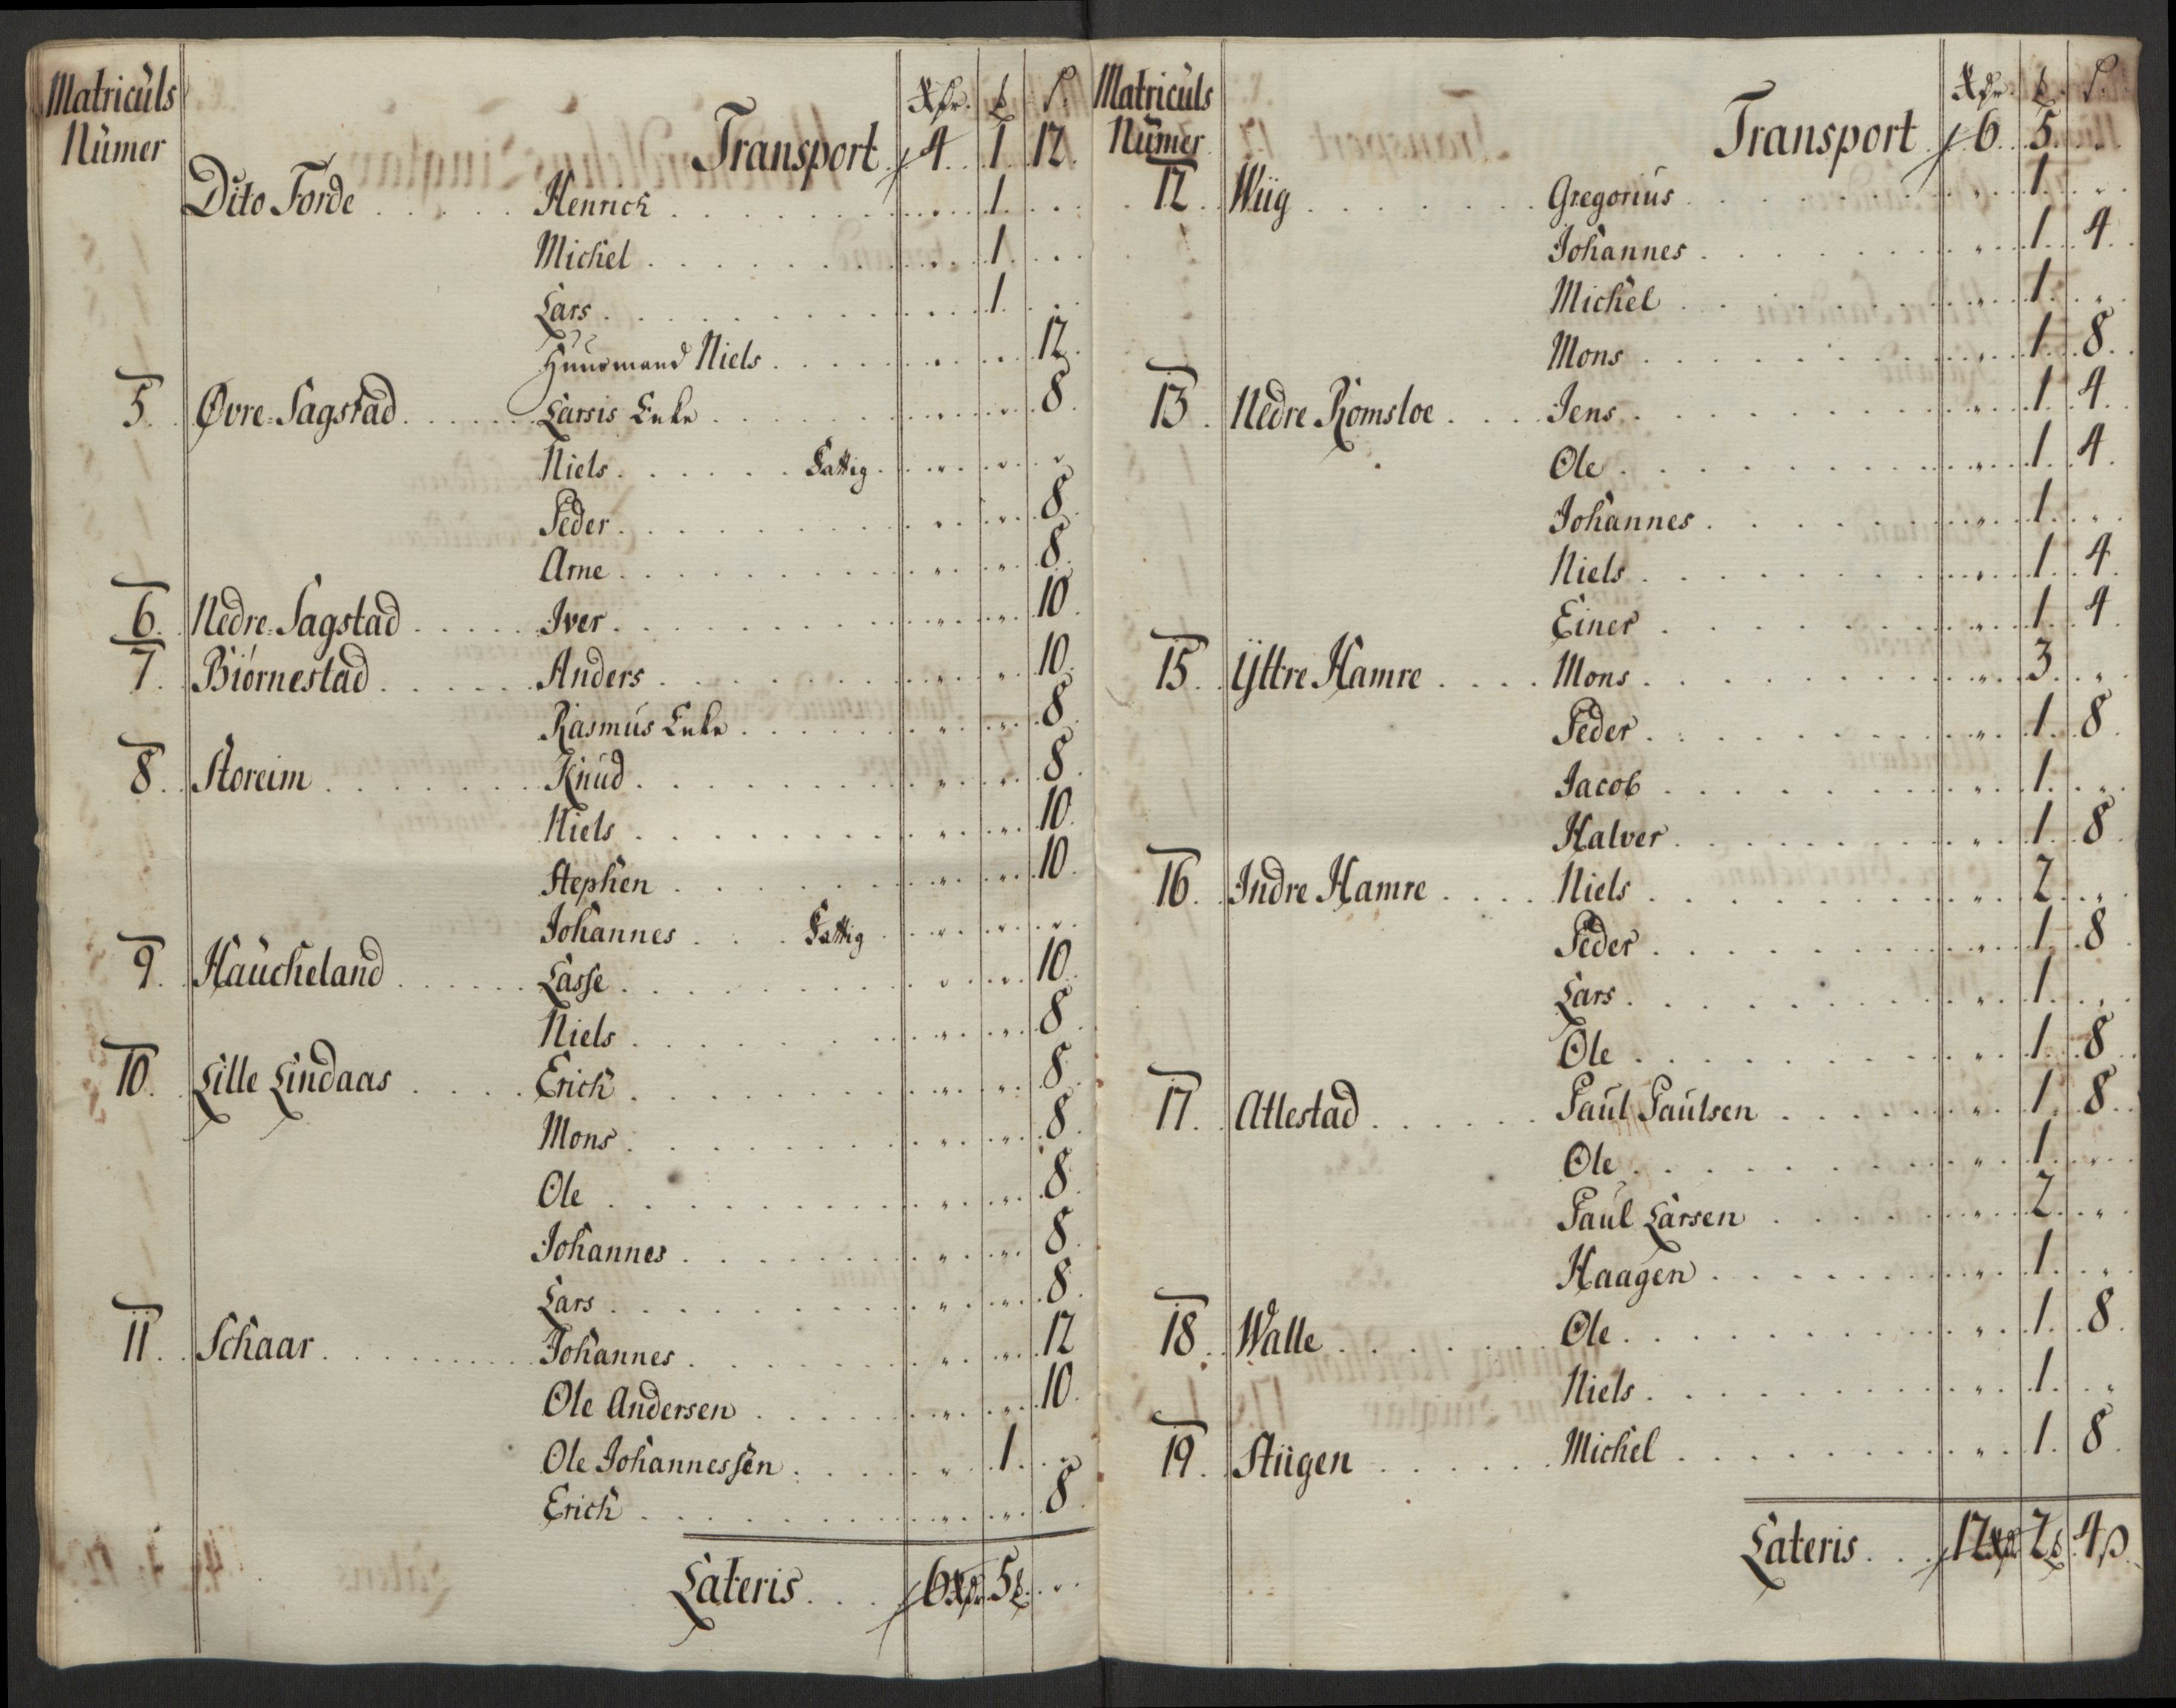 Matriculs Numer
Xdr. ₰ ß.
Transport 4 1 12.
Dito Forde Henrich 1
Michel 1
Lars 1
Huusmand Niels 12.
5. Øvre-Sagstad Larsis Enke 8.
Niels Fattig
Peder 8
Arne 8.
6. Nedre-Sagstad Iver 10.
7. Biörnestad Anders 10.
Rasmus Enke 8
8. Storeim Knud 8
Niels 10.
Stephen 10.
Johannes Fattig
9. Haucheland Lasse 10.
Niels 8
10. Lille Lindaas Erich 8
Mons 8
Ole 8
Johannes 8
Lars 8
11. Schaar Johannes 12
Ole Andersen 10.
Ole Johannessen 1
Erich 8
Lateris 6 5
Matriculs Numer
Xdr. ₰ ß.
Transport 6 5.
12 Wiig Gregorius 1
Johannes 1 4
Michel 1
Mons 1 8
13. Nedre Romsloe Jens 1 4
Ole 1 4
Johannes 1
Niels 1 4
Einer 1 4
15. Yttre Hamre Mons 3
Peder 1 8
Jacob 1
Halver 1 8
16. Indre Hamre Niels 2
Peder 1 8
Lars 1
Ole 1 8
17. Atlestad Paul Paulsen 1 8
Ole 1
Paul Larsen 2
Haagen 1
18. Walle Ole 1 8
Niels 1
19. Stiigen Michel 1 8
Lateris 12 2 4ß